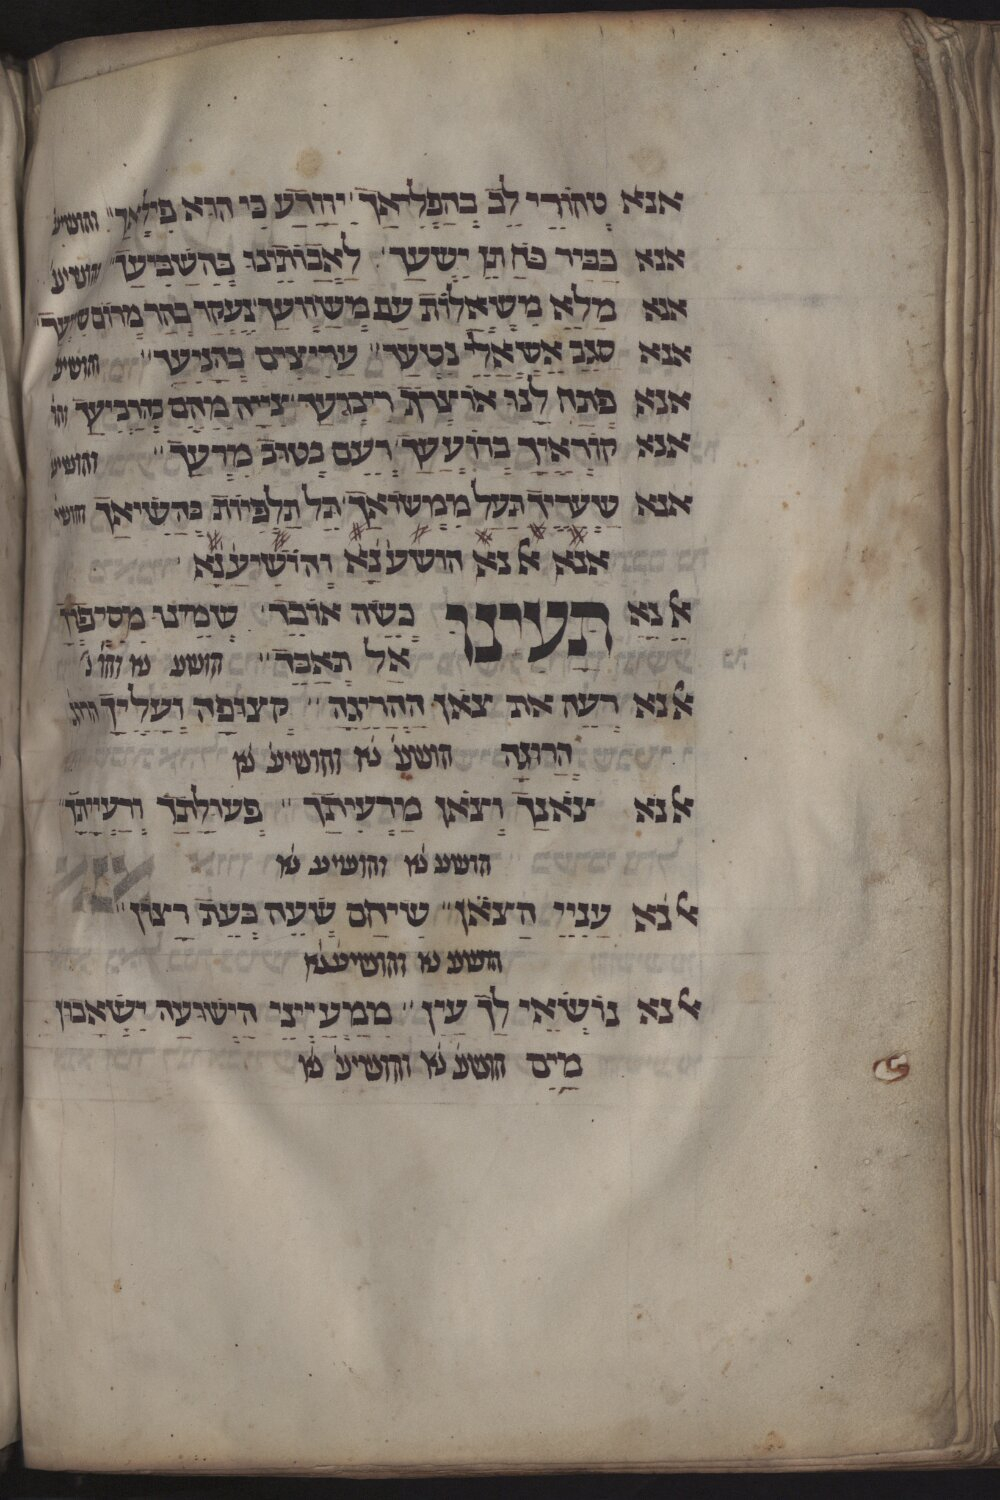 אנא טהורי לב בהפליאך יוודע כי הוא פילאך והושיע
אנא כביר כח תן ישעך לאבותינו כהשביעך והושיע
אנא מלא משאלות עם משוועך נעקד בהר מרום שוועך
אנא סגב אשאלי נטעך עריצים בהניעך והושיע
אנא פתח לנו אוצרך ריבעך צייה מהם בהרביעך והו
אנא קוראיך ברועעך רעם בטוב מרעך והושיע
אנא שעריך תעל ממשואך תל תלפיות בהשיאך והושי
אנא אל נא הושענא והושיעה נא
אל נא תעינו כשה אובד שמינו מסיפרך
אל תאבד הושע נא והו נ
אל נא רעה את צאן ההריגה קצופה ועליך הרוג
הרוגה הושע נא והושיע נא
אל נא צאנך וצאן מרעיתך פעולתך ורעייתך
הושע נא והושיע נא
אל נא עניי הצאן שיחם שעה בעת רצון
הושע נא והושיע נא
אל נא נושאי לך עין ממעייני הישועה ישאבון
מים הושע נא והושיע נא